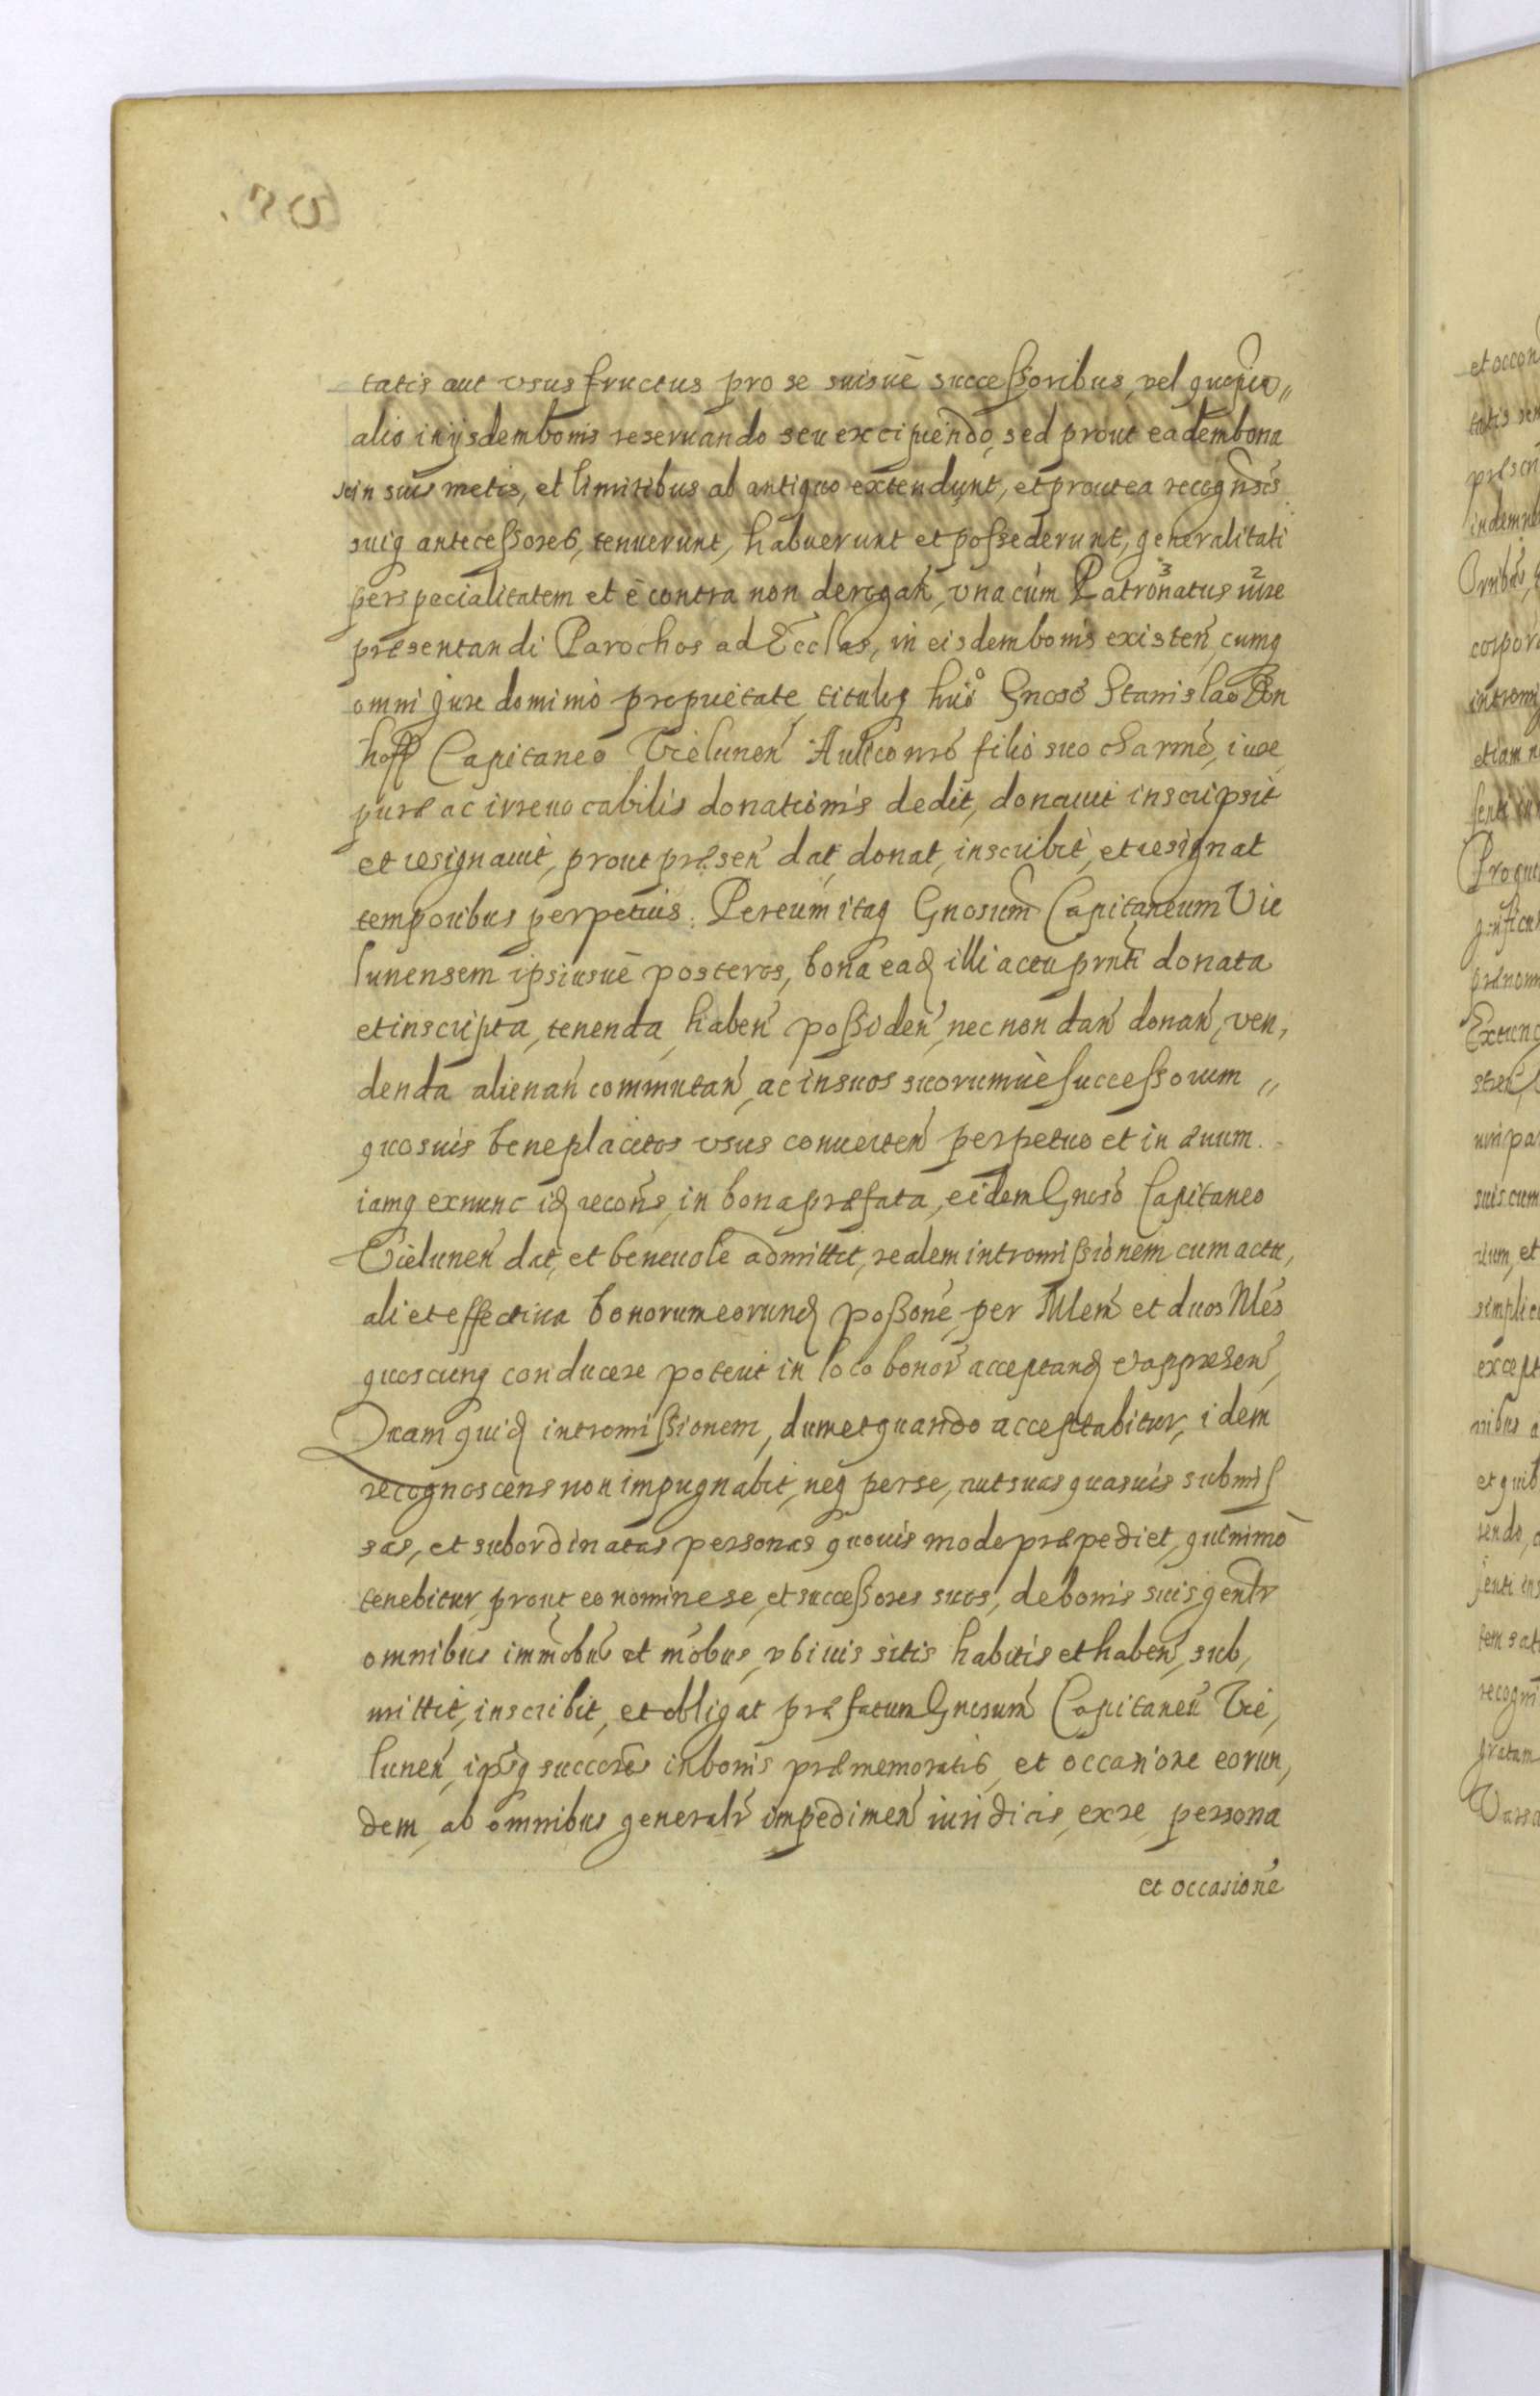 tatis aut vsus fructus pro se suisuè successoribus, vel quopia„
alio in ijsdem bonis reseruando seu excipiendo, sed prout eadem bona
in suis metis, et limitibus ab antiquo extendunt, et prout ea recogñscs
suiq antecessores, tenuerunt, habuerunt et possederunt, generalitati
per specialitatem et è contra non derogañ, vna cùm Patronatus iure
præsentandi Parochos ad Eccłas, in eisdem bonis existeñ, cumq
omni jure dominiò proprietate, tituloq huiõ Gnoso Stanislao Don
hoff Capitaneo Vieluneñ Aulico nro filio suo charmo, iure
puræ ac irreuocabilis donationis dedit, donauit inscripsit
et resignauit, prout præseñ dat, donat, inscribit, et resignat
temporibus perpetuis. Per eum itaq Gnosum Capitaneum Vie
lunensem ipsiusuè posteros, bona eadꝫ illi actu prnti donata
et inscripta, tenenda, habeñ possideñ, nec non dañ donañ, ven,
denda alienañ commutañ, ac in suos suorumuè successorum „
quosuis beneplacitos vsus conuerteñ perpetuo et in æuum.
iamq ex nunc idꝫ recoñs, in bona præfata, eidem Gnoso Capitaneo
Vieluneñ dat, et beneuole admittit, realem intromissionem cum actu,
ali et effectiua bonorum eorundꝫ possone, per Mlem et duos Nles
quoscunq conducere poterit in loco bonor acceptandꝫ et appreheñ,
Quam quidꝫ intromissionem, dum et quando acceptabitur, idem
recognoscens non impugnabit, neq per se, aut suas quasuis submis
sas, et subordinatas personas quouis modo præpediet, quinimò
tenebitur, prout eo nomine se, et successores suos, de bonis suis genlr
omnibus immobus et mobus, vbiuis sitis habitis et habeñ, sub,
mittit, inscribit, et obligat præfatum Gnosum Capitaneu Vie,
luneñ, ipsq succores in bonis præmemoratis, et occasione eorun,
dem, ab omnibus generalr impedimeñ iuridicis, ex re, persona
et occasione